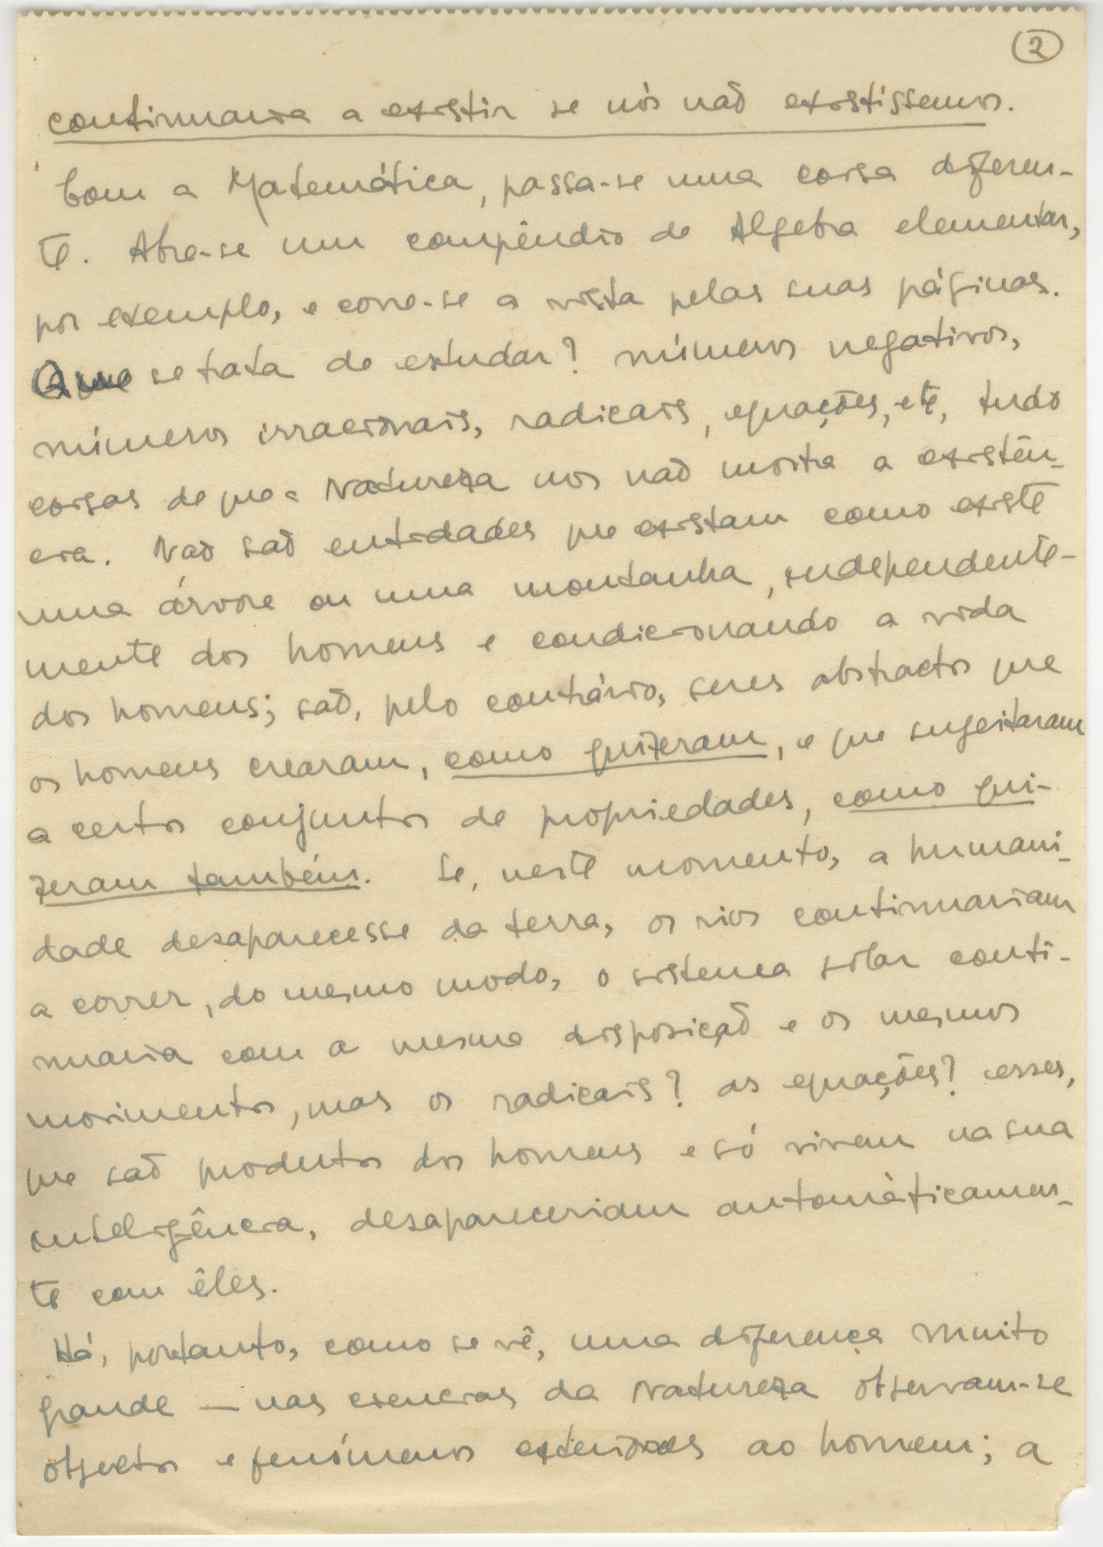 2
continuaria a existir se nós não existíssemos.
Com a Matemática, passa-se uma coisa diferen-
te. Abre-se um compêndio de Algebra elementar,
por exemplo, e corre-se a vista pelas suas páginas.
Que se trata de estudar? números negativos,
números irracionais, radicais, equações, etc, tudo
coisas de que a Natureza nos não mostra a existên-
cia. Não são entidades que existam como existe
uma árvore ou uma montanha, independente-
mente dos homens e condicionando a vida
dos homens; são, pelo contrário, seres abstractos que
os homens crearam, como quizeram, e que sugeitaram
a certos conjuntos de propriedades, como qui-
zeram também. Se, neste momento, a humani-
dade desaparecesse da terra, os rios continuariam
a correr, do mesmo modo, o sistema solar conti-
nuaria com a mesma disposição e os mesmos
movimentos, mas os radicais? as equações? esses,
que são produtos dos homens e só vivem na sua
inteligência, desapareceriam automàticamen-
te com êles.
Há, portanto, como se vê, uma diferença muito
grande — nas ciencias da Natureza observam-se
objectos e fenómenos exteriores ao homem; a